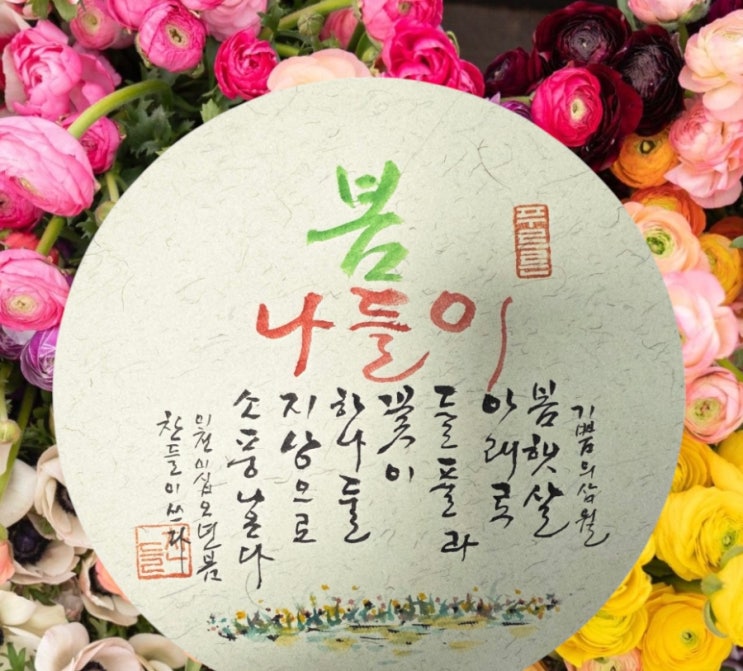 봄
나들이
기쁨의 삼월
봄햇살
아래로
들풀과
꽃이
하나 둘
지상으로
소풍 나온다
이천이십오년 봄
찬들이 쓰다